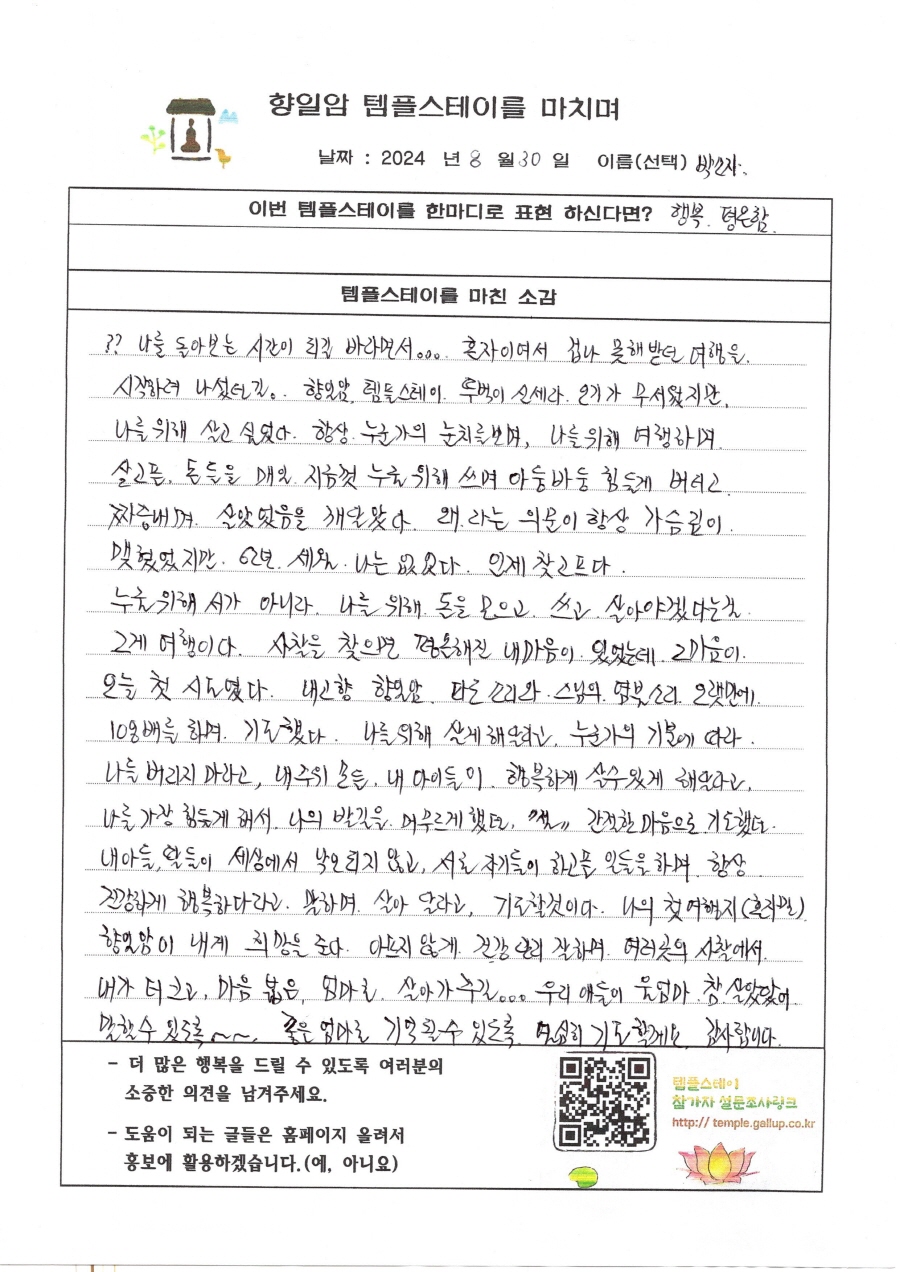 향일암 템플스테이를 마치며
날짜 : 2024 년 8 월 30 일 이름(선택)
이번 템플스테이를 한마디로 표현 하신다면? 행복. 평온함.
템플스테이를 마친 소감
?? 나를 돌아보는 시간이 되길 바라면서... 혼자이여서 겁나 못해 받던 여행을.
시작하려 나섰던길. 향일암, 템플스테이. 두벅이 신세라. 오기가 무서웠지만,
나를위해 살고 싶었다. 항상. 누군가의 눈치를보며, 나를위해 여행하며.
살고픈, 돈들을 매일. 지금껏 누굴위해 쓰며 아둥바둥 힘들게 버티고.
짜증내며. 살았었음을 깨달았다. 왜. 라는 의문이 항상 가슴깊이.
맺혔었지만. 62년. 세월. 나는 없었다. 인제 찾고프다.
누굴위해서가 아니라. 나를 위해. 돈을 모으고. 쓰고. 살아야겠다는걸.
그게 여행이다. 사찰을 찾으면 평온해진 내마음이. 있었는데. 그마음이.
오늘 첫 시도였다. 내고향 향일암. 파도소리와. 스님의. 염불소리. 오랫만에.
108배를 하며. 기도했다. 나를위해 살게해달라고, 누군가의 기분에 따라.
나를 버리지 마라고, 내주위 모든, 내 아이들이. 행복하게 살수있게 해달라고.
나를 가장 힘들게 해서. 나의 발길을. 머무르게했던, 간절한마음으로 기도했다.
내아들, 딸들이 세상에서 낙오되지 않고, 서로 자기들이 하고픈 일들을 하며. 항상
건강하게 행복하다라고. 말하며. 살아 달라고, 기도할것이다. 나의 첫여행지(혼자만)
향일암이 내게 희망을 준다. 아프지않게. 건강 관리 잘하며. 여러곳의 사찰에서.
내가 더크고, 마음 넓은, 엄마로. 살아가주길... 우리 애들이 울엄마. 참.살았닸어
말할수 있도록~~, 좋은엄마로 기억될수있도록. 열심히 기도할께요, 감사합니다.
- 더 많은 행복을 드릴 수 있도록 여러분의
소중한 의견을 남겨주세요.
- 도움이 되는 글들은 홈페이지 올려서
홍보에 활용하겠습니다.(예, 아니요)
템플스테이
참가자 설문조사링크
http:// temple.gallup.co.kr